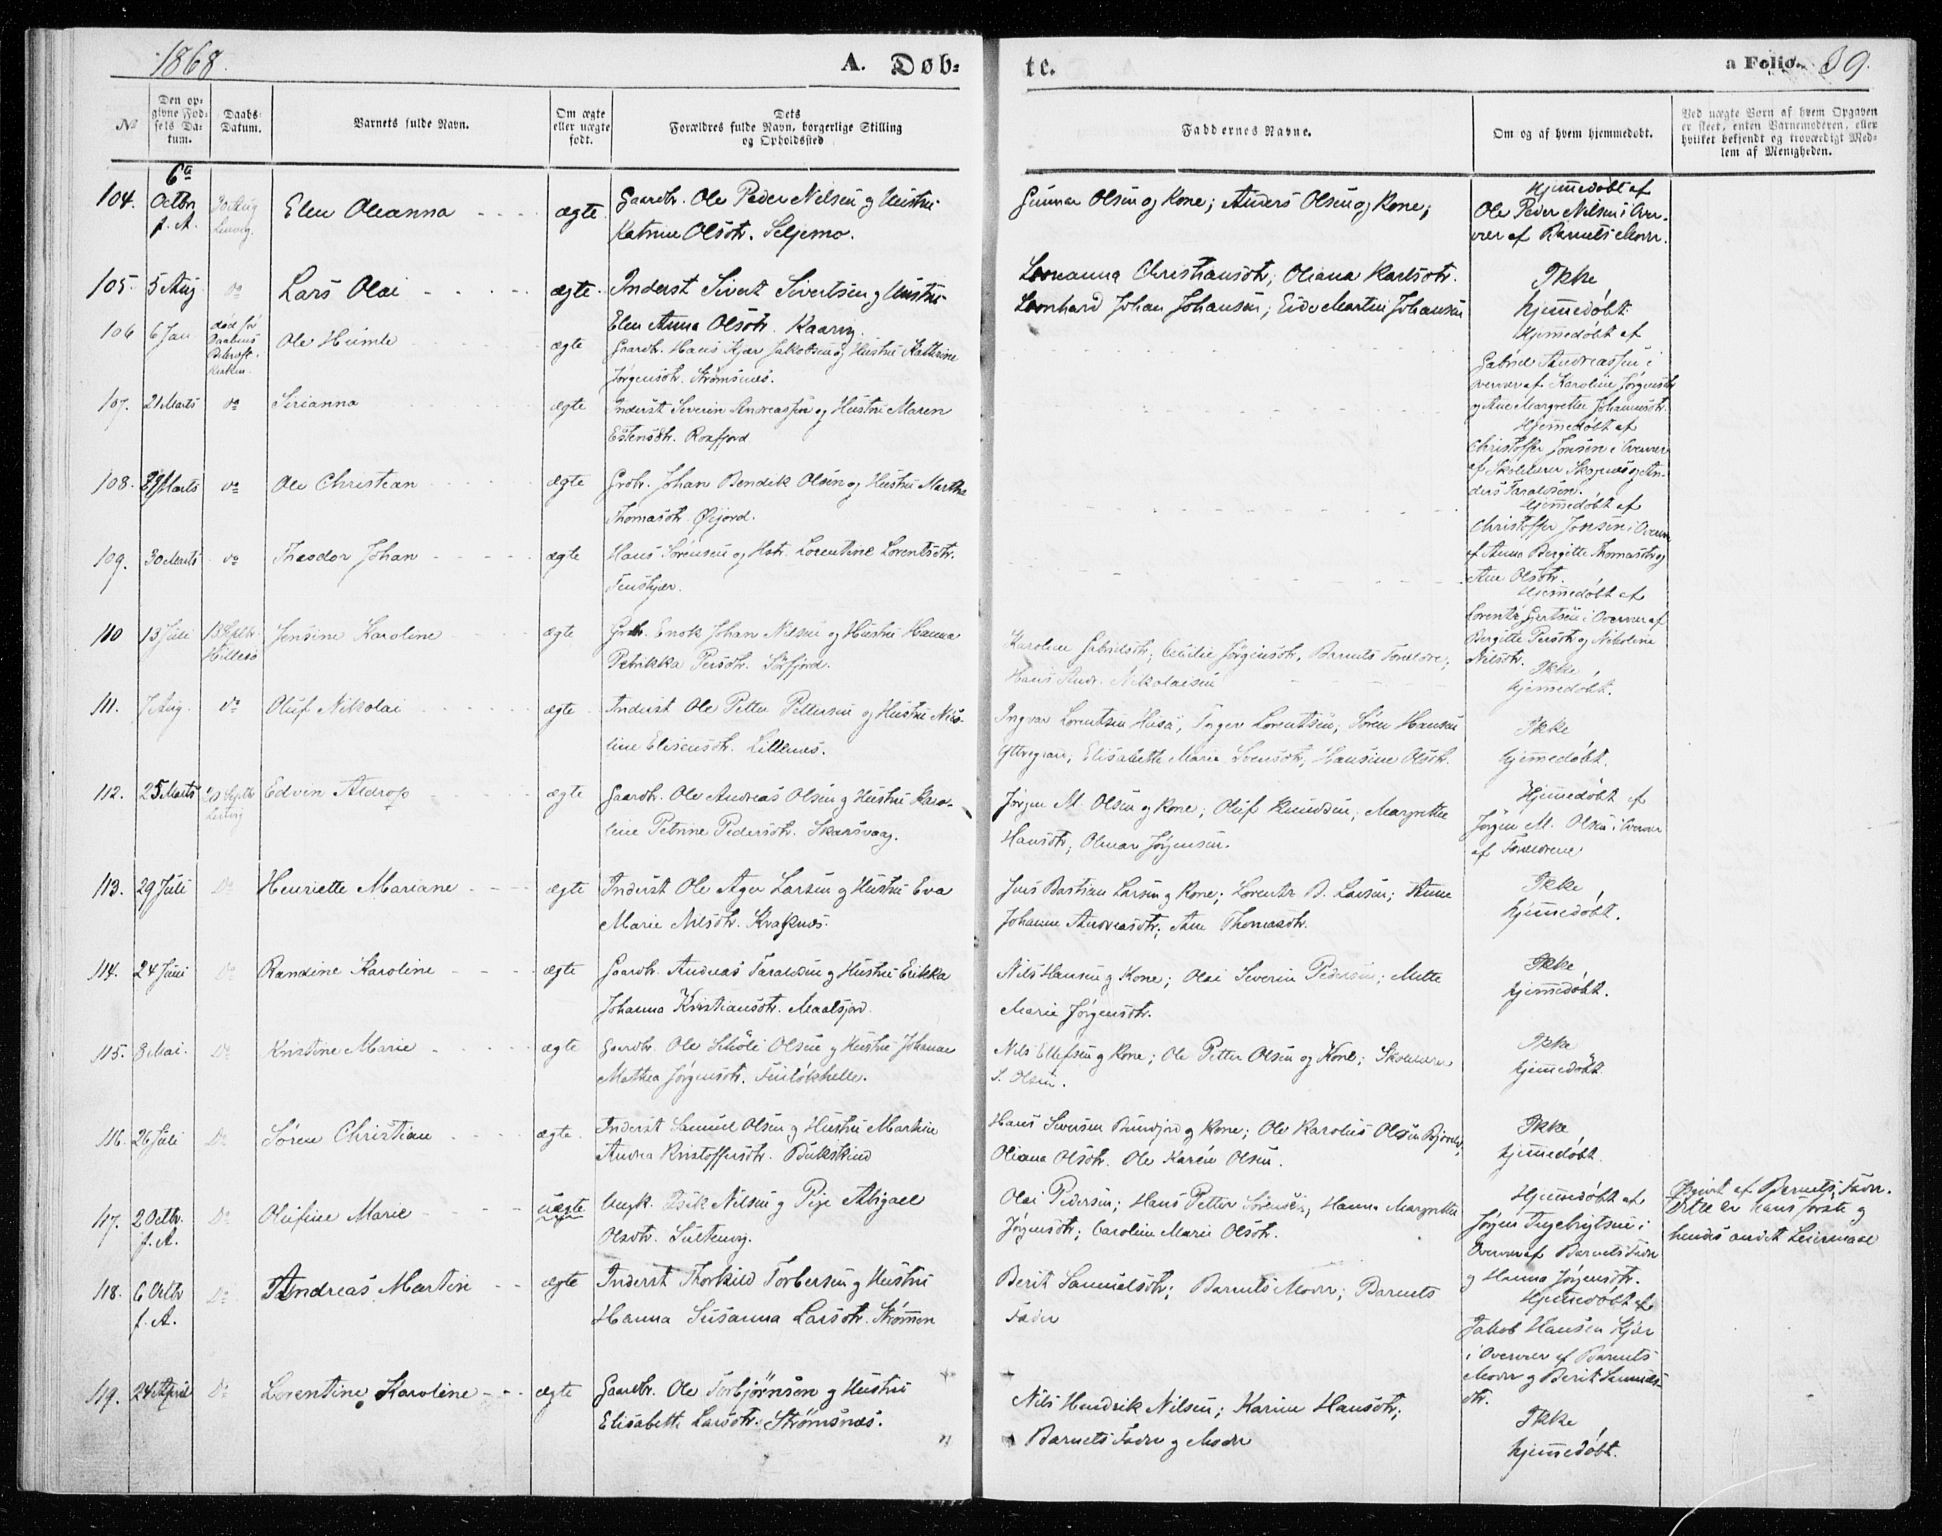 1868.
A. Døb=
te.
a Folio. 39.
No
Den op-
givne Fød-
sels Da-
tum.
Daabs
Datum.
Barnets fulde Navn.
Om ægte
eller uægte
født.
Dets
Forældres fulde Navn, borgerlige Stilling
og Opholdssted
Faddernes Navne.
Om og af hvem hjemmedøbt.
Ved uægte Børn af hvem Opgaven
er skeet, enten Barnemoderen, eller
hvilket bekjendt og troværdigt Med-
lem af Menigheden.
104. 6te Octbr f. A. Elen Oleanna ægte.
Gaardbr. Ole Peder Nilsen og Hustru
Katrine Olsdtr. Seljemo.
Gunnar Olsen og Kone; Anders Olsen og Kone;
Hjemmedøbt af
Ole Peder Nilsen i Over-
vær af Barnets Moder.
105. 5 Aug do Lars Olai ægte.
Inderst Sivert Sivertsen og Hustru
Elen Anna Olsdtr. Kaarvig.
Leonanna Christiansdtr; Oliana Karlsdtr.
Leonhard Johan Johansen; Eide Martin Johansen
Ikke
hjemmedøbt.
106 6 Jan død før Daabens Bekræft. i Kirken. Ole Humle ægte
Gaardbr. Hans Kjær Jakobsen og Hustru Kathrine
Jørgensdtr. Strømsnes.
Hjemmedøbt af
Gabriel Andreassen i
Overvær af Karoline Jørgensdtr
og Ane Margrethe Johannesdtr.
107. 21 Marts do Sirianna ægte
Inderst Severin Andreassen og Hustru Maren
Estensdtr. Roxfjord
Hjemmedøbt af
Christoffer Jonsen i Overvær
af Skolelærer Skognes og An-
ders Taraldsen.
108. 29 Marts do Ole Christian ægte
Grdbr. Johan Bendik Olsen og Hustru Marthe
Thomasdtr. Øijord.
Hjemmedøbt af
Christoffer Jonsen i Overvær
af Anna Bergitte Thomasdtr og
Ane Olsdtr.
109. 30 Marts do Theodor Johan ægte
Hans Sørensen og Hstr. Lorentine Lorentsdtr.
Finskjær.
Hjemmedøbt af
Lorentz Gjertsen i Overvær af
Bergitte Persdtr og Nikoline
Nilsdtr.
110 13 Juli 13 Septbr Hillesø Jensine Karoline ægte
Grdbr. Enok Johan Nilsen og Hustru Hanna
Petrikka Persdtr. Sørfjord.
Karoline Gabrielsdtr; Cecilie Jørgensdtr, Barnets Forældre;
Hans Andr. Nikolaisen
Ikke
hjemmedøbt.
111. 7 Aug. do Oluf Nikolai ægte
Inderst Ole Petter Pettersen og Hustru Niko-
line Elisensdtr. Lillenes.
Ingvar Lorentsen Huså; Inger Lorentsen; Søren Hansen
Yttregaard; Elisabethe Marie Svensdtr; Hansine Olsdtr.
Ikke
hjemmedøbt.
112. 25 Marts 20 Septbr Lenvig Edvin Aldrop ægte
Gaardbr. Ole Andreas Olsen og Hustru Karo-
line Petrine Pedersdtr. Skarsvaag.
Jørgen M. Olsen og Kone; Oluf Knudsen; Margrethe
Hansdtr; Olmar Jørgensen.
Hjemmedøbt af
Jørgen M. Olsen i Overvær
af Forældrene
113. 29 Juli Do Henriette Mariane ægte
Inderst Ole Ager Larsen og Hustru Eva
Marie Nilsdtr. Kvaknes.
Jens Bastian Larsen og Kone; Lorentz B. Larsen; Anne
Johanne Andreasdtr; Ane Thomasdtr.
Ikke
hjemmedøbt.
114. 24 Juni Do Randine Karoline ægte
Gaardbr. Andreas Taraldsen og Hustru Erikka
Johanna Kristiansdtr. Maalsjord.
Nils Hansen og Kone; Olai Severin Pedersen; Mette
Marie Jørgensdtr.
Ikke
hjemmedøbt.
115. 8 Mai. Do Kristine Marie ægte
Gaardbr. Ole Schøle Olsen og Hustru Johanna
Mathea Jørgensdtr. Finlökhelle.
Nils Ellefsen og Kone; Ole Petter Olsen og Kone; Skolelærer
S. Olsen.
Ikke
hjemmedøbt
116. 26 Juli Do Søren Christian ægte.
Inderst Samuel Olsen og Hustru Martine
Andrea Kristoffersdtr. Bukskind
Hans Iversen Bundjord og Kone; Ole Karolius Olsen
Oliana Olsdtr. Ole Karén Olsen.
Ikke
hjemmedøbt.
117. 2 Octbr. f. A. Do Olufine Marie uægte
Ungk. Isik Nilsen og Pige Abigael
Olsdtr. Sultenvig.
Olai Pedersen; Hans Petter Sørensen; Hanna Margrethe
Jørgensdtr; Caroline Marie Olsdtr.
Hjemmedøbt af
Jørgen Ingebrigtsen i
Overvær af Barnets Fader
og Hanna Jørgensdtr.
Opgivet af Barnets Fader.
Dette er hans første og
hendes andet Leiermaal
118. 6 Octbr f. A. Do Andreas Martin ægte
Inderst Thorkild Torbersen og Hustru
Hanna Susanna Larsdtr. Strømmen
Berit Samuelsdtr; Barnets Moder; Barnets
Fader
Hjemmedøbt af
Jakob Hansen Kjær
i Overvær af Barnets
Moder og Berit Samuels-
dtr.
119. 24 April Do Lorentine Karoline ægte
Gaardbr. Ole Torbjørnsen og Hustru
Elisabeth Larsdtr. Strømsnes.
Nils Hendrik Nilsen; Karine Hansdtr;
Barnets Fader og Moder
Ikke
hjemmedøbt.